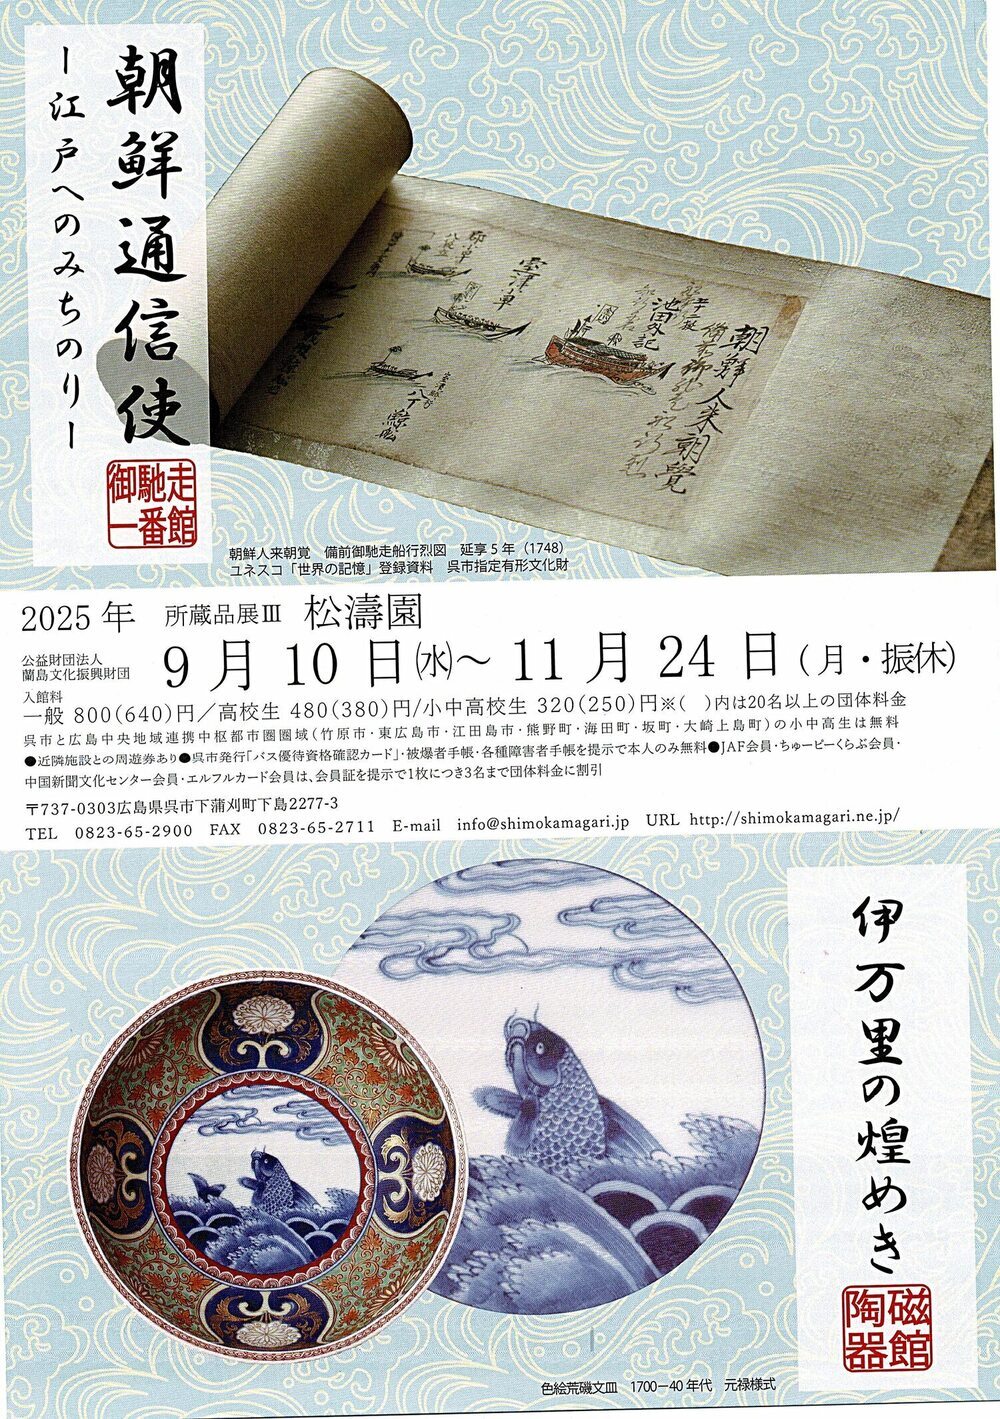 朝鮮通信使
ー江戸へのみちのりー
御馳走
一番館
朝鮮人来朝覺
池田外記
室津舟
朝鮮人来朝覚　備前御馳走船行烈図　延享5年（1748）
ユネスコ「世界の記憶」登録資料　呉市指定有形文化財
2025年　所蔵品展Ⅲ　松濤園
公益財団法人
蘭島文化振興財団
9月10日㈬～11月24日（月・振休）
入館料
一般 800(640)円／高校生 480(380)円/小中高校生 320(250)円※(　)内は20名以上の団体料金
呉市と広島中央地域連携中枢都市圏圏域(竹原市・東広島市・江田島市・熊野町・海田町・坂町・大崎上島町)の小中高生は無料
●近隣施設との周遊券あり●呉市発行「バス優待資格確認カード」・被爆者手帳・各種障害者手帳を提示で本人のみ無料●JAF会員・ちゅーピーくらぶ会員・
中国新聞文化センター会員・エルフルカード会員は、会員証を提示で1枚につき3名まで団体料金に割引
〒737-0303広島県呉市下蒲刈町下島2277-3
TEL　0823-65-2900　FAX　0823-65-2711　E-mail　info@shimokamagari.jp　URL http://shimokamagari.ne.jp/
伊万里の煌めき
陶磁
器館
色絵荒磯文皿　1700－40年代　元禄様式